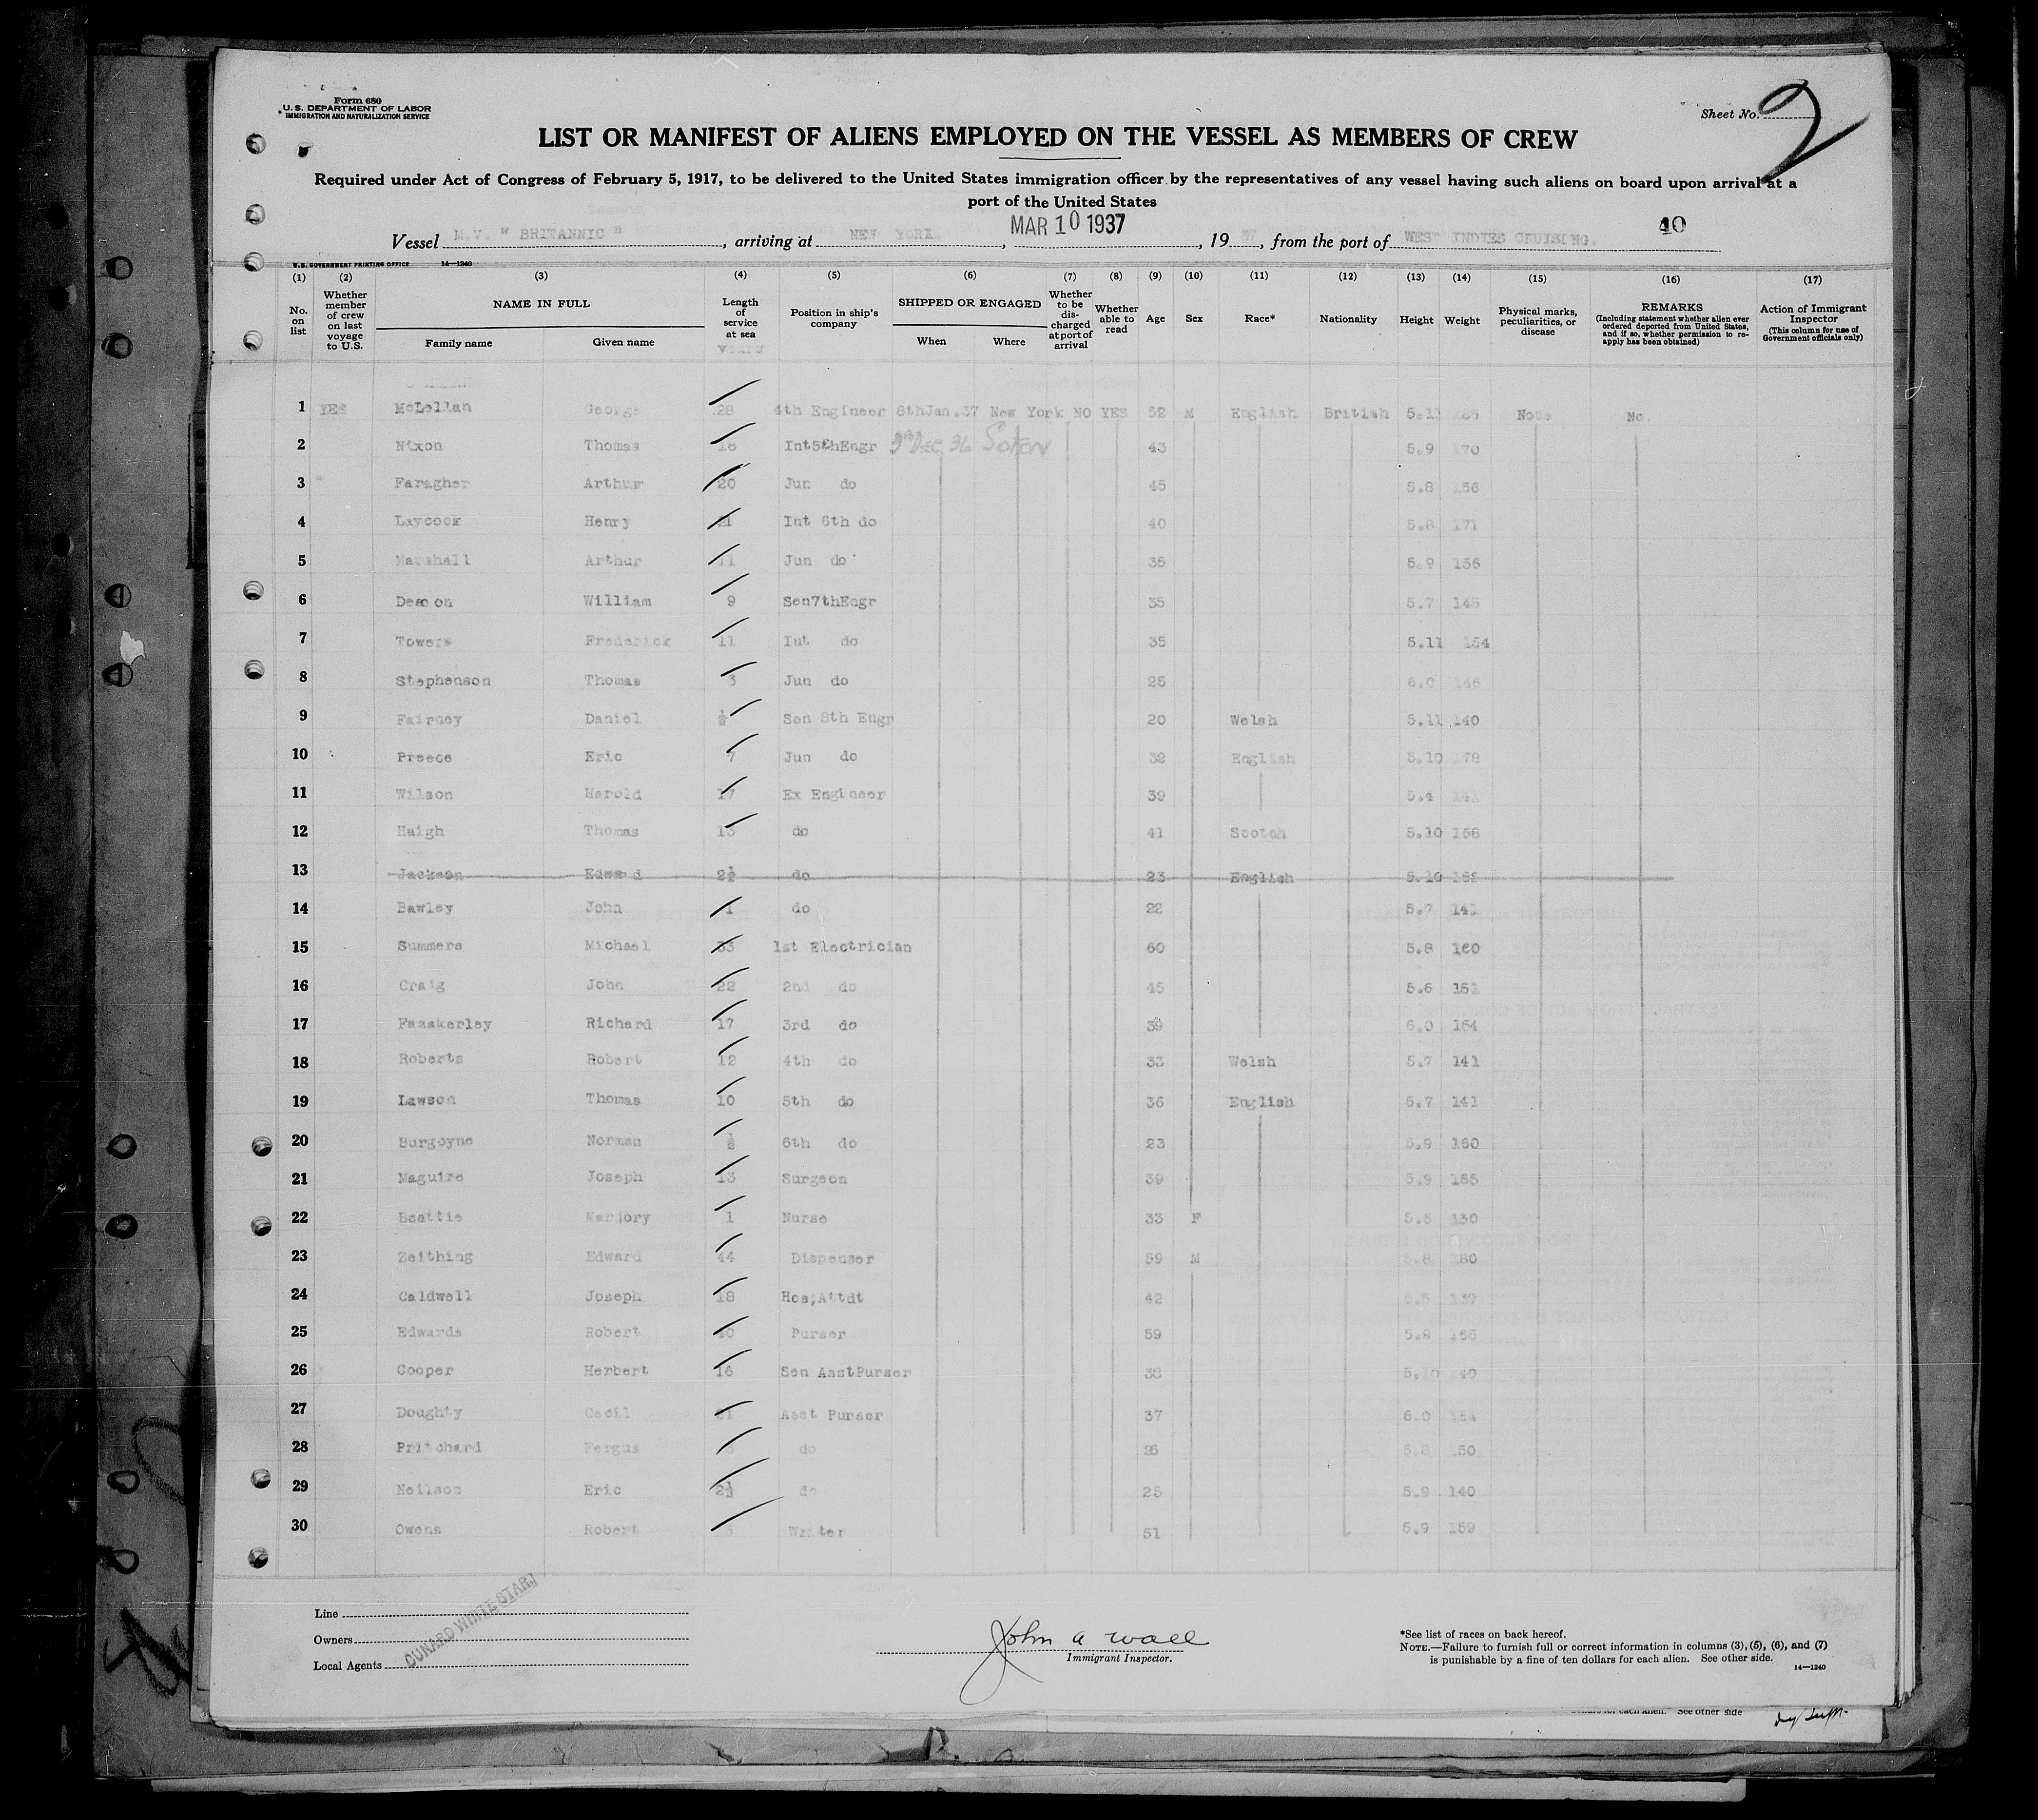 Form 680
U.S. DEPARTMENT OF LABOR
IMMIGRATION AND NATURALIZATION SERVICE
Sheet No. 2
LIST OR MANIFEST OF ALIENS EMPLOYED ON THE VESSEL AS MEMBERS OF CREW
Required under Act of Congress of February 5, 1917, to be delivered to the United States immigration officer by the representatives of any vessel having such aliens on board upon arrival at a
port of the United States
Vessel M.V. " BRITANNIC ", arriving at NEW YORK, MAR 10 1937, 19 37, from the port of WEST INDIES CRUISING. 40
U.S. GOVERNMENT PRINTING OFFICE 14—1240
(1) (2) (3) (4) (5) (6) (7) (8) (9) (10) (11) (12) (13) (14) (15) (16) (17)
No. on list
Whether member of crew on last voyage to U.S.
NAME IN FULL
Family name Given name
Length of service at sea
years
Position in ship's company
SHIPPED OR ENGAGED
When Where
Whether to be discharged at port of arrival
Whether able to read
Age
Sex
Race*
Nationality
Height
Weight
Physical marks, peculiarities, or disease
REMARKS
(Including statement whether alien ever ordered deported from United States, and if so, whether permission to re-apply has been obtained)
Action of Immigrant Inspector
(This column for use of Government officials only)
1 YES McLellan George 28 4th Engineer 8thJan.37 New York NO YES 52 M English British 5.11 None No.
2 Nixon Thomas Int5thEngr Dec. 36 Soton 43 5.9 170
3 Faragher Arthur 20 Jun do 45 5.8 156
4 Laycock Henry 21 Int 6th do 40 5.8 171
5 Marshall Arthur 11 Jun do 35 5.9 156
6 Deacon William 9 Sen7thEngr 35 5.7
7 Towers Frederick 11 Int do 35 5.11 154
8 Stephenson Thomas 3 Jun do 25 6.0 146
9 Fairney Daniel ½ Sen 8th Engr 20 Welsh 5.11 140
10 Preece Eric 7 Jun do 32 English 5.10 178
11 Wilson Harold 17 Ex Engineer 39 5.4 141
12 Haigh Thomas 13 do 41 Scotch 5.10 158
13 Jackson Edward 2½ do 23 English 5.10
14 Bawley John 1 do 22 5.7 141
15 Summers Michael 33 1st Electrician 60 5.8 160
16 Craig John 22 2nd do 45 5.6 151
17 Fazakerley Richard 17 3rd do 39 6.0 154
18 Roberts Robert 12 4th do 33 Welsh 5.7 141
19 Lawson Thomas 10 5th do 36 English 5.7 141
20 Burgoyne Norman ½ 6th do 23 5.9 160
21 Maguire Joseph 13 Surgeon 39 5.9 165
22 Beattie Marjory 1 Nurse 33 F 5.5 130
23 Zeithing Edward 44 Dispenser 59 M 5.8 180
24 Caldwell Joseph 18 Hos;Attdt 42 5.5 139
25 Edwards Robert 40 Purser 59 5.8
26 Cooper Herbert 16 Sen AsstPurser 38 5.10 140
27 Doughty Cecil 21 Asst Purser 37 6.0 154
28 Pritchard Fergus do 26 5.8
29 Neilson Eric 2½ do 25 5.9 140
30 Owens Robert Writer 51 5.9 159
Line
Owners
Local Agents
CUNARD WHITE STAR
John A Wall
Immigrant Inspector.
*See list of races on back hereof.
NOTE.—Failure to furnish full or correct information in columns (3), (5), (6), and (7)
is punishable by a fine of ten dollars for each alien. See other side.
14—1240
for each alien. See other side